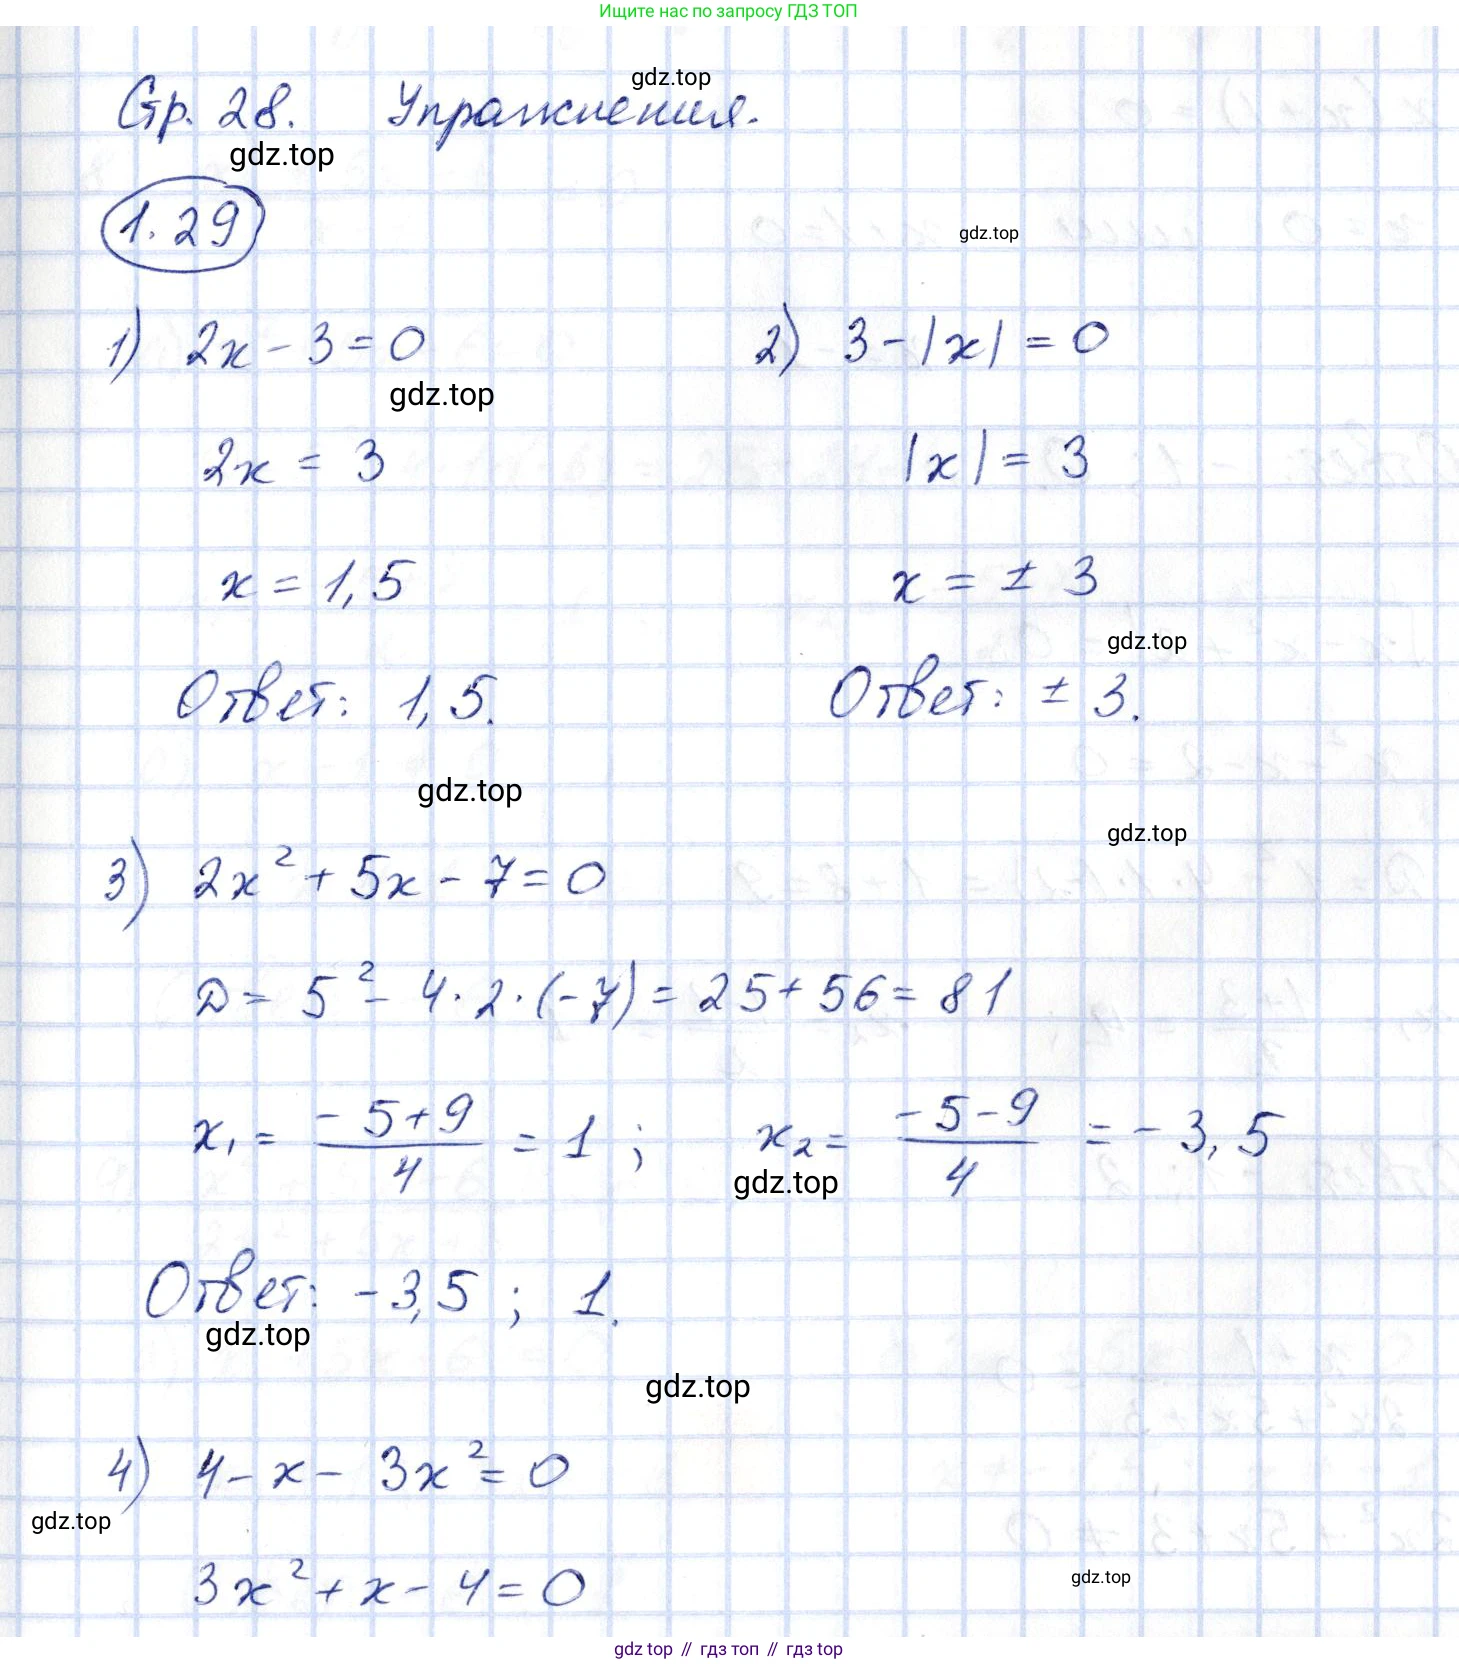 Ищите нас по запросу ГДЗ ТОП
gdz.top
Стр. 28. Упражнения.
gdz.top
1.29
gdz.top
1) 2x - 3 = 0
2) 3 - |x| = 0
gdz.top
2x = 3
|x| = 3
x = 1,5
x = ± 3
gdz.top
Ответ: 1,5.
Ответ: ± 3.
gdz.top
gdz.top
3) 2x² + 5x - 7 = 0
D = 5² - 4·2·(-7) = 25 + 56 = 81
x₁ = (-5+9)/4 = 1; x₂ = (-5-9)/4 = -3,5
gdz.top
Ответ: -3,5; 1.
gdz.top
gdz.top
4) 4 - x - 3x² = 0
gdz.top
3x² + x - 4 = 0
gdz.top
gdz top // гдз топ // гдз top